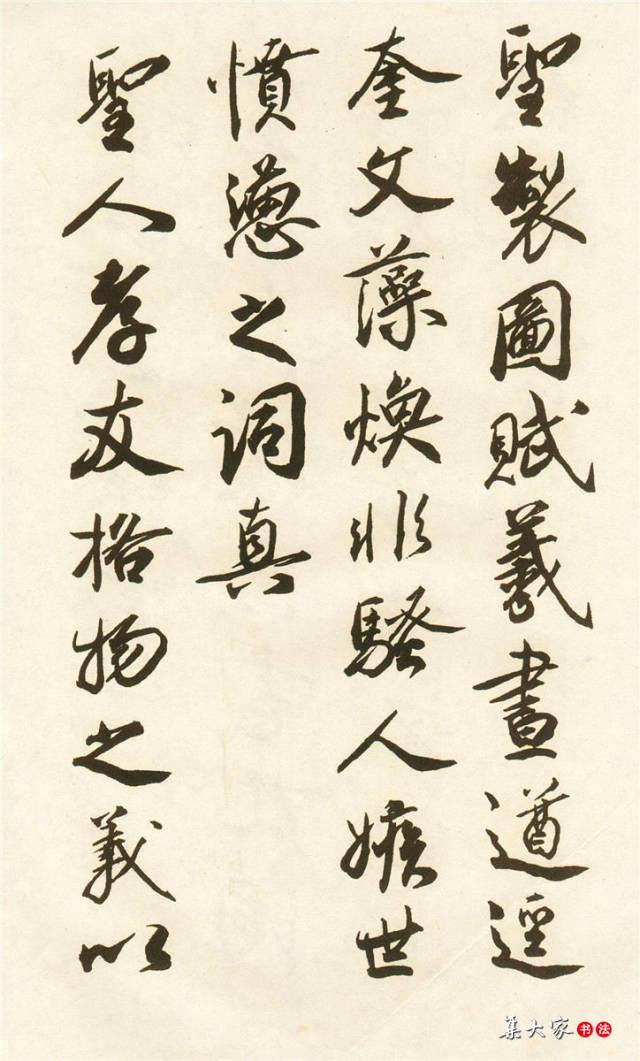 聖製圖賦羲畫遒逕
奎文藻煥非騷人嫉世
憤懣之詞真
聖人孝友格物之義以
集大家书法